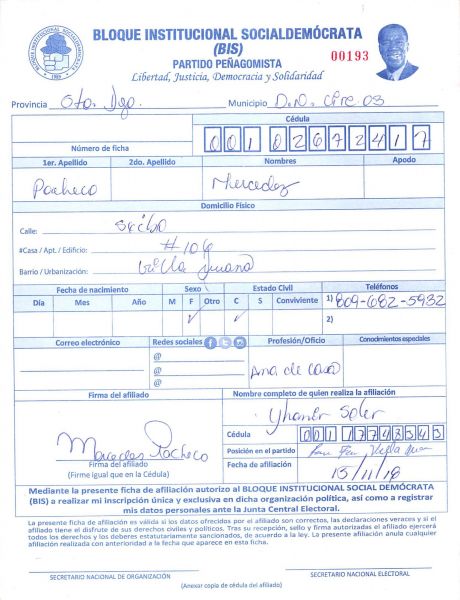 BLOQUE INSTITUCIONAL SOCIALDEMÓCRATA
(BIS)
PARTIDO PEÑAGOMISTA
00193
Libertad, Justicia, Democracia y Solidaridad
Provincia Sto. Dgo. Municipio D.N. Circ 03
Número de ficha
Cédula
001 0267241 7
1er. Apellido 2do. Apellido Nombres Apodo
Pacheco Mercedes
Domicilio Físico
Calle:
#Casa / Apt. / Edificio: #106
Barrio / Urbanización: Villa Juana
Fecha de nacimiento Sexo Estado Civil Teléfonos
Día Mes Año M F Otro C S Conviviente 1) 809-682-5932
✓ ✓ 2)
Correo electrónico Redes sociales Profesión/Oficio Conocimientos especiales
@
@
@
Ama de casa
Firma del afiliado Nombre completo de quien realiza la afiliación
Mercedes Pacheco
Firma del afiliado
(Firme igual que en la Cédula)
Soler
Cédula 001 1774334 3
Posición en el partido
Fecha de afiliación 15/11/18
Mediante la presente ficha de afiliación autorizo al BLOQUE INSTITUCIONAL SOCIAL DEMÓCRATA
(BIS) a realizar mi inscripción única y exclusiva en dicha organización política, así como a registrar
mis datos personales ante la Junta Central Electoral.
La presente ficha de afiliación es válida si los datos ofrecidos por el afiliado son correctos, las declaraciones veraces y si el
afiliado tiene el disfrute de sus derechos civiles y políticos. Tras su recepción, sello y firma autorizadas el afiliado ejercerá
todos los derechos y los deberes estatutariamente sancionados, de acuerdo a la ley. La presente afiliación anula cualquier
afiliación realizada con anterioridad a la fecha que aparece en esta ficha.
SECRETARIO NACIONAL DE ORGANIZACIÓN SECRETARIO NACIONAL ELECTORAL
(Anexar copia de cédula del afiliado)